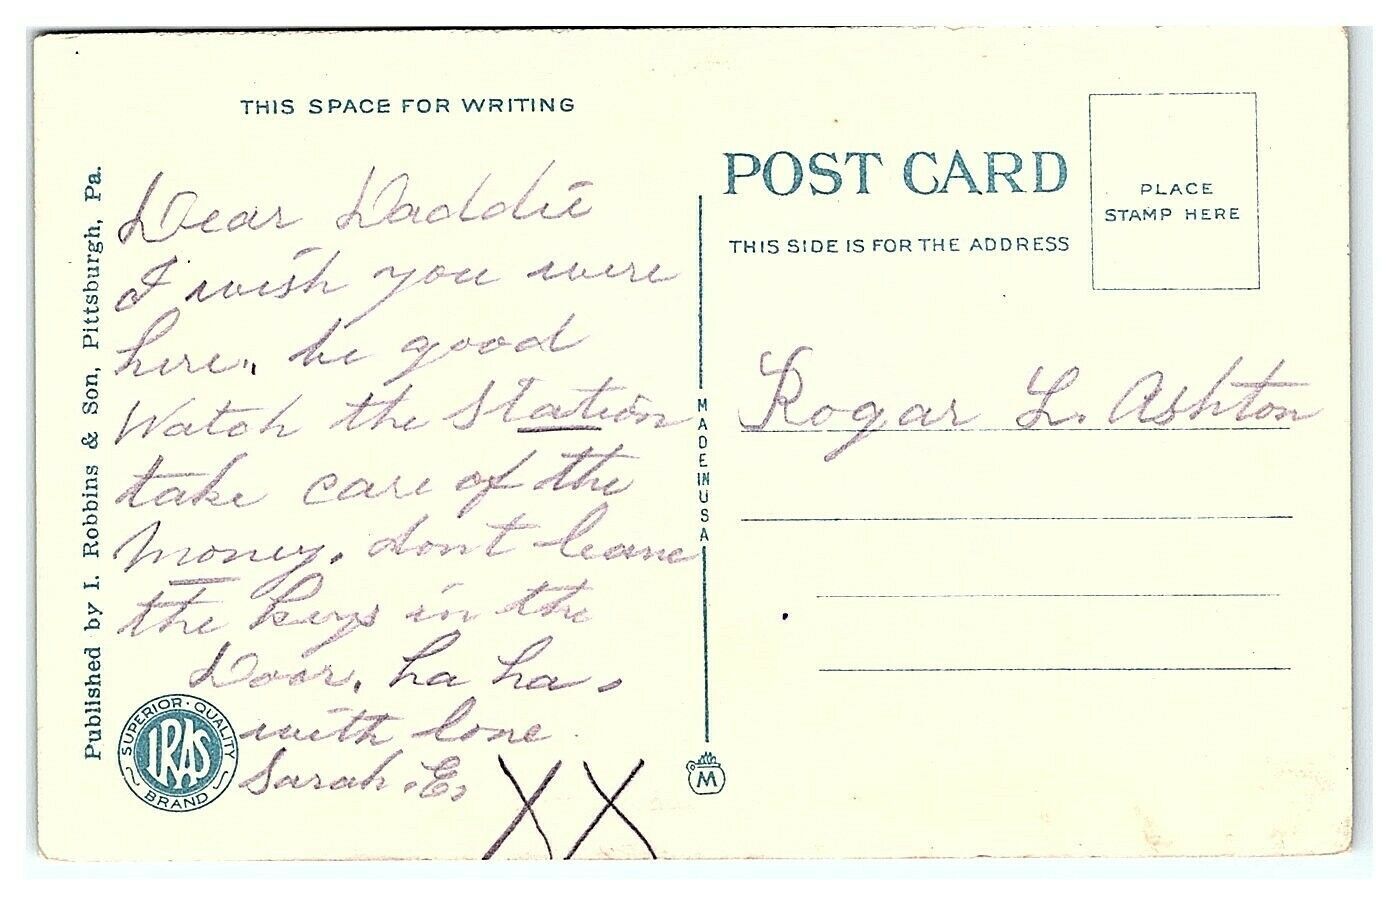 THIS SPACE FOR WRITING
Dear Daddie
I wish you were
here,, be good
Watch the Station
take care of the
Money. dont leave
the keys in the
Door, ha ha.
with love
Sarah .E.
XX
Published by I. Robbins & Son, Pittsburgh, Pa.
SUPERIOR · QUALITY
IRAS
BRAND
MADE IN USA
M
POST CARD
THIS SIDE IS FOR THE ADDRESS
PLACE
STAMP HERE
Rogar L. Ashton